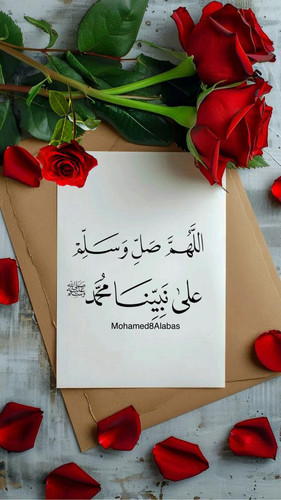 اللَّهُمَّ صَلِّ وَسَلِّمْ
على نَبِيِّنَا مُحَمَّد ﷺ
Mohamed8Alabas